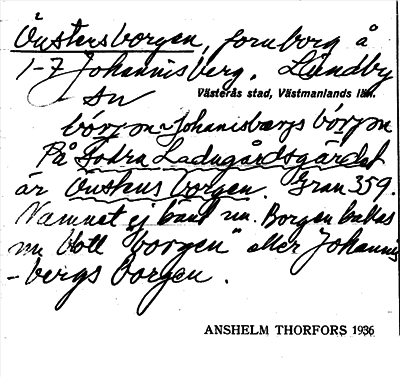 Önstensborgen, fornborg å
1-7 Johannisberg, Lundby
sn Västerås stad, Västmanlands län.
bórjᵊn ~ Johanisbærgs bórjᵊn
På Södra Ladugårdsgärdet
är Önstens borgen. Gran 359.
Namnet ej känt nu. Borgen kallas
nu blott "borgen" eller Johannis
-bergs borgen.
ANSHELM THORFORS 1936